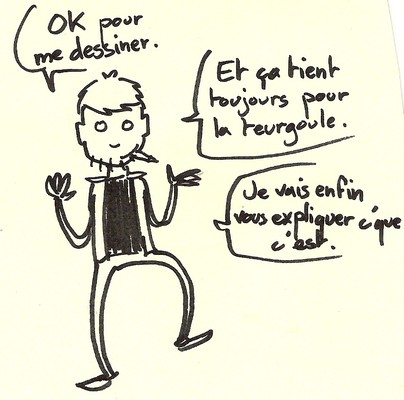 OK pour
me dessiner.
Et ça tient
toujours pour
la teurgoule.
Je vais enfin
vous expliquer c'que
c'est.